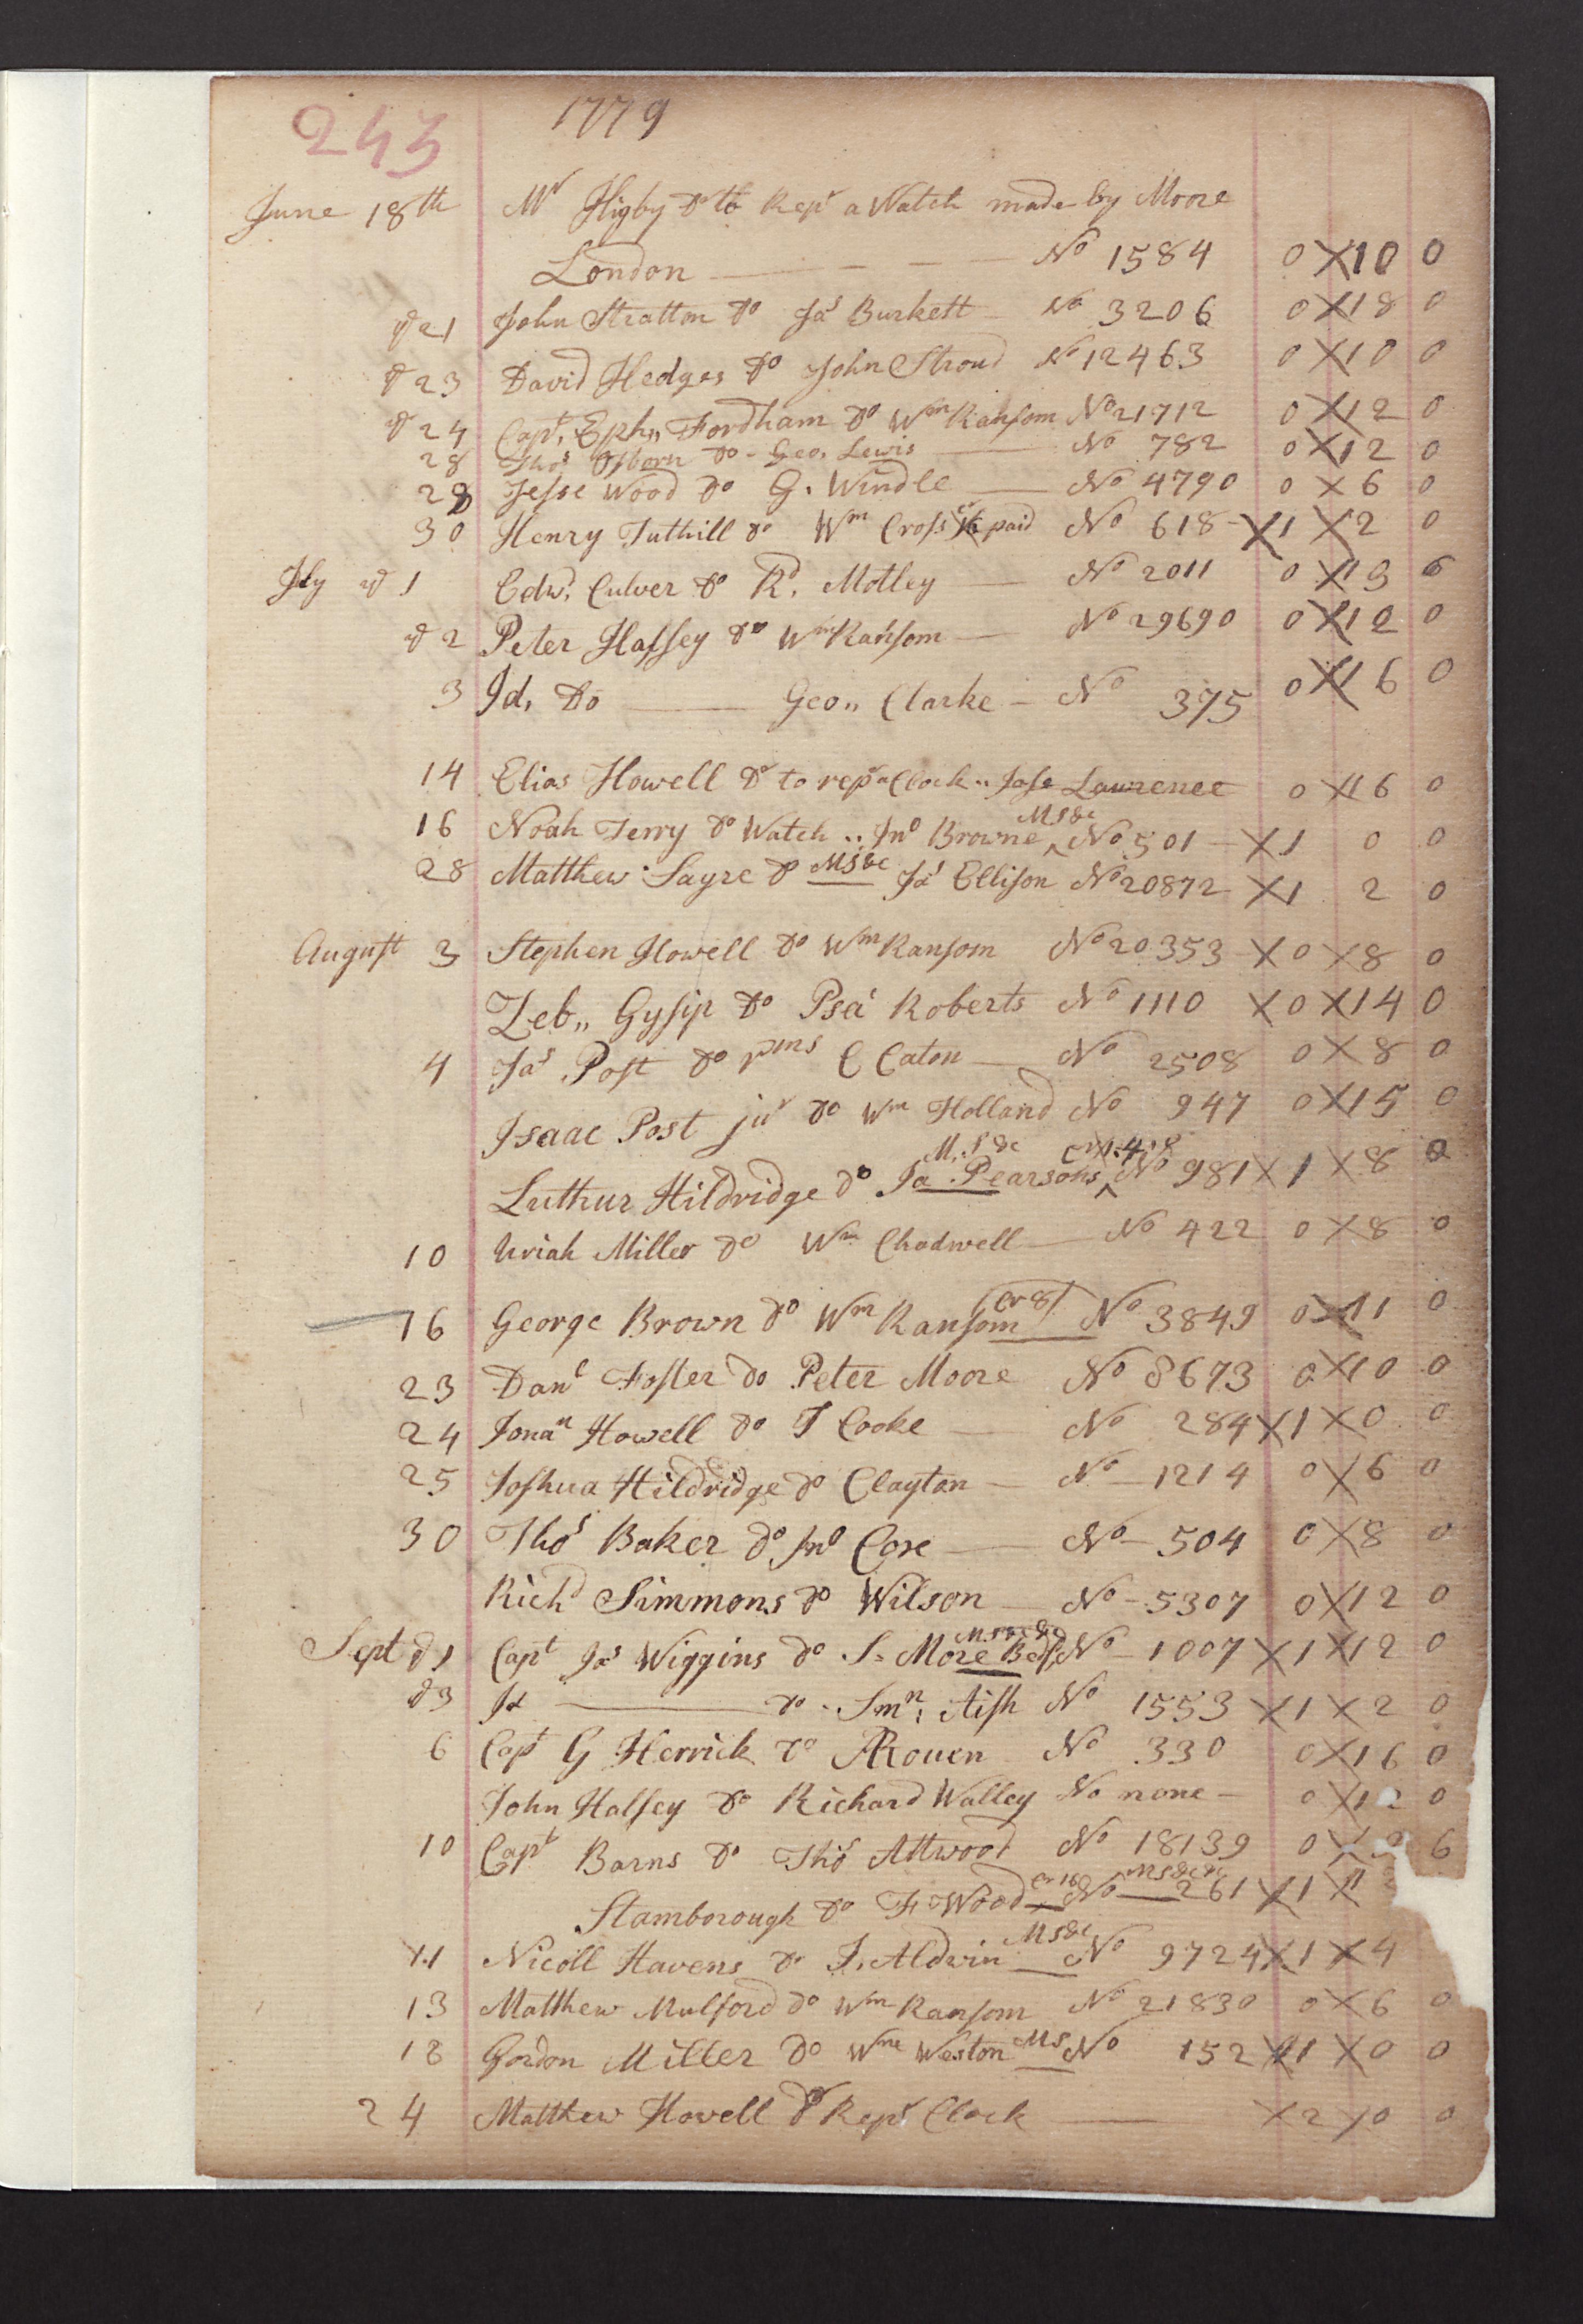 243 1779
June 18th Mr Higby Dr to Repr a Watch made by Moore
London No 1584 0 X 10 0
21 John Stratton Do Jas Burkett No 3206 0 X 18 0
23 David Hedges Do John Stroud No 12463 0 X 10 0
24 Capt. Eph,, Fordham Do Wm Ransom No 21712 0 X 12 0
28 Thos Osborn Do Geo. Lewis No 782 0 X 12 0
28 Jesse Wood Do G. Windle No 4790 0 X 6 0
30 Henry Tuthill Do Wm Cross paid No 618 X 1 X 2 0
Jly 1 Edw. Culver Do Rd. Motley No 2011 0 X 19 6
2 Peter Halsey Do Wm Ransom No 29690 0 X 12 0
3 Id, Do Geo,, Clarke No 375 0 X 16 0
14 Elias Howell Dr to repr a Clock Lawrence 0 X 16 0
16 Noah Terry Do Watch Jno Browne MS&c No 501 X 1 0 0
28 Matthew Sayre Do MS&c Jas Ellison No 20872 X 1 2 0
August 3 Stephen Howell Do Wm Ransom No 20353 X 0 X 8 0
Zeb,, Do Roberts No 1110 X 0 X 14 0
4 Jas Post Do C Caton No 2508 0 X 8 0
Isaac Post jur Do Wm Holland No 947 0 X 15 0
Luthur Hildridge Do Ja Pearsons M.S&c No 981 X 1 X 8 0
10 Uriah Miller Do Wm Chadwell No 422 0 X 8 0
16 George Brown Do Wm Ransom Cr 8/ No 3849 0 X 11 0
23 Danl Foster Do Peter Moore No 8673 0 X 10 0
24 Jonan Howell Do T Cooke No 284 X 1 X 0 0
25 Joshua Hildridge Do Clayton No 1214 0 X 6 0
30 Thos Baker Do Jno Coxe No 504 0 X 8 0
Richd Simmons Do Wilson No 5307 0 X 12 0
Sept 1 Capt Jas Wiggins Do S. More No 1007 X 1 X 12 0
3 Id Do Smn: Aish No 1553 X 1 X 2 0
6 Capt G Herrick Do Rouen No 330 0 X 16 0
John Halsey Do Richard Walley No none 0 X 12 0
10 Capt Barns Do Thos Attwood No 18139 0 X 6
Stamborough Do F Wood No 261 X 1 X
11 Nicoll Havens Do J. Aldwin MS&c No 9724 X 1 X 4
13 Matthew Mulford Do Wm Ransom No 21830 0 X 6 0
18 Gordon Miller Do Wm Weston MS No 152 X 1 X 0 0
24 Matthew Howell Dr Repr Clock X 2 X 0 0